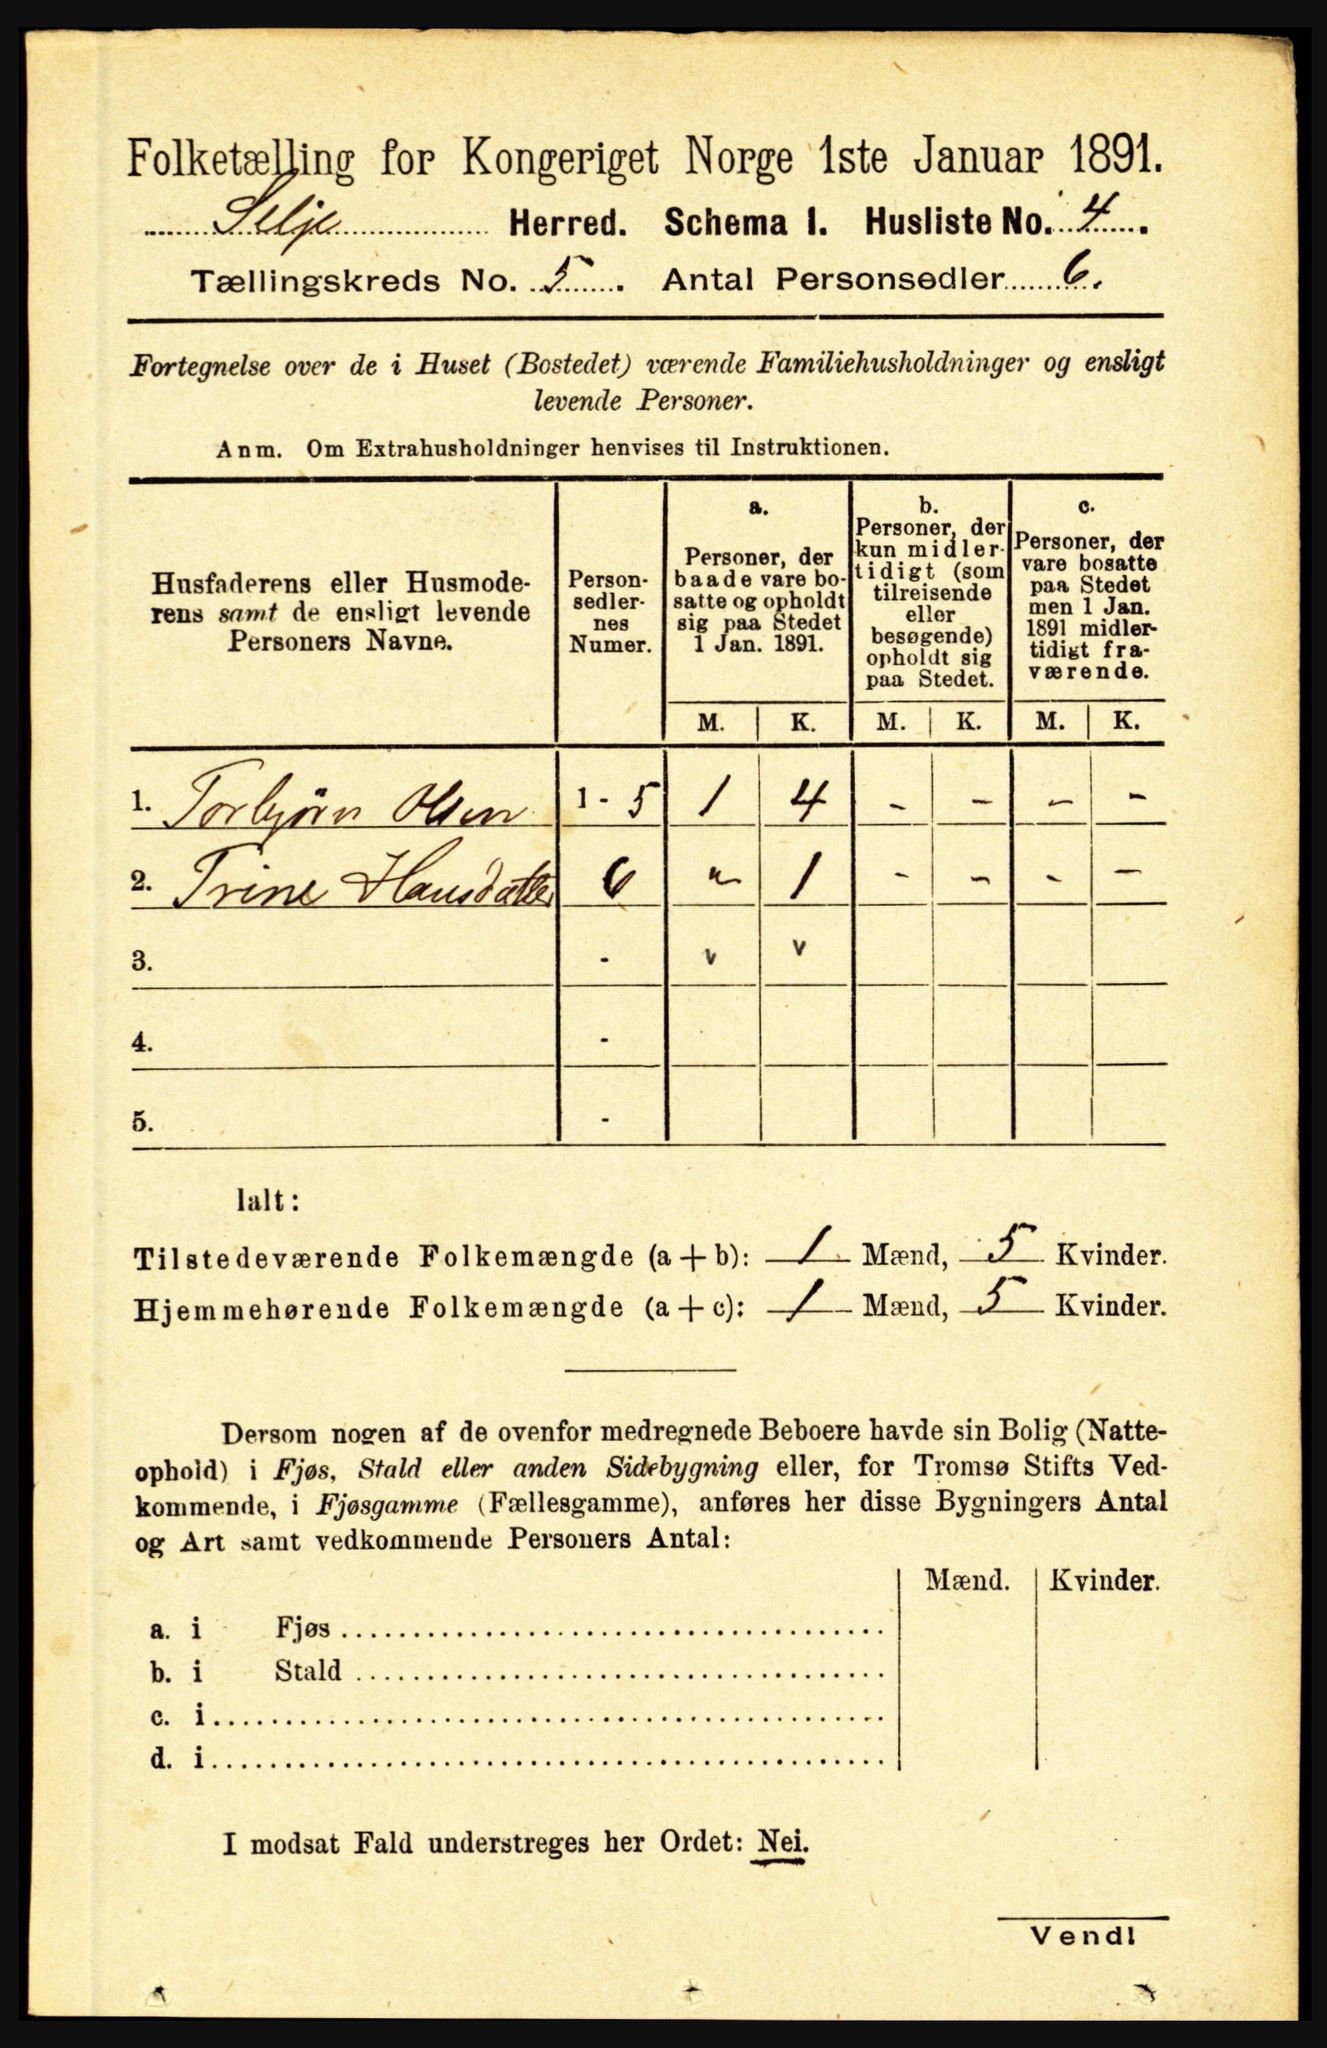 Folketælling for Kongeriget Norge 1ste Januar 1891.
Selje Herred. Schema I. Husliste No. 4.
Tællingskreds No. 5. Antal Personsedler 6.
Fortegnelse over de i Huset (Bostedet) værende Familiehusholdninger og ensligt
levende Personer.
Anm. Om Extrahusholdninger henvises til Instruktionen.
Husfaderens eller Husmode-
rens samt de ensligt levende
Personers Navne.
Person-
sedler-
nes
Numer.
a.
Personer, der
baade vare bo-
satte og opholdt
sig paa Stedet
1 Jan. 1891.
b.
Personer, der
kun midler-
tidigt (som
tilreisende
eller
besøgende)
opholdt sig
paa Stedet.
c.
Personer, der
vare bosatte
paa Stedet
men 1 Jan.
1891 midler-
tidigt fra-
værende.
M. K. M. K. M. K.
1. Torbjørn Olsen 1 - 5 1 4 - - - -
2. Trine Hansdatter 6 " 1 - - - -
3. - v v
4. -
5. -
Ialt:
Tilstedeværende Folkemængde (a + b): 1 Mænd, 5 Kvinder.
Hjemmehørende Folkemængde (a + c): 1 Mænd, 5 Kvinder.
Dersom nogen af de ovenfor medregnede Beboere havde sin Bolig (Natte-
ophold) i Fjøs, Stald eller anden Sidebygning eller, for Tromsø Stifts Ved-
kommende, i Fjøsgamme (Fællesgamme), anføres her disse Bygningers Antal
og Art samt vedkommende Personers Antal:
Mænd. Kvinder.
a. i Fjøs
b. i Stald
c. i
d. i
I modsat Fald understreges her Ordet: Nei.
Vend!